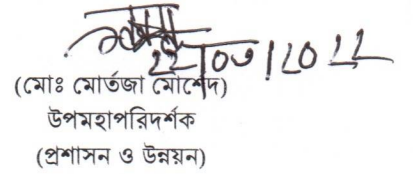 ২২/০৩/২০২২
(মোঃ মোর্তজা মোর্শেদ)
উপমহাপরিদর্শক
(প্রশাসন ও উন্নয়ন)